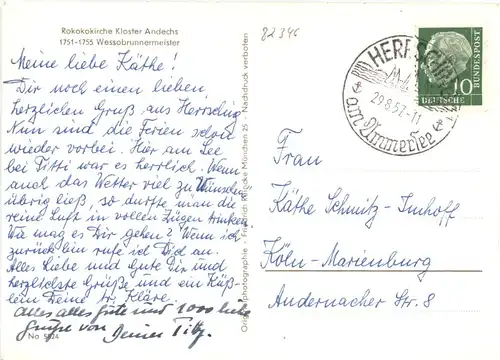 Rokokokirche Kloster Andechs
1751-1755 Wessobrunnermeister
Meine liebe Käthe!
Dir noch einen lieben,
herzlichen Gruß aus Herrsching
Nun sind die Ferien schon
wieder vorbei. Hier am See
bei Titti war es herrlich. Wenn
auch das Wetter viel zu Wünschen
übrig ließ, so durfte man die
reine Luft in vollen Zügen trinken
Wie mag es Dir gehen? Wenn ich
zurück bin rufe ich Dich an.
Alles Liebe und Gute Dir und
herzlichste Grüße und ein Küß-
lein Deine tr. Kläre.
Alles alles gute und 1000 liebe
Grüße von Deiner Titty.
No. 5824
Originalphotographie - Friedrich München 25 - Nachdruck verboten
82346
HERRSCHING
29.8.57.-11
am Ammersee
10
DEUTSCHE
BUNDESPOST
Frau
Käthe Schmitz-Imhoff
Köln-Marienburg
Andernacher Str. 8